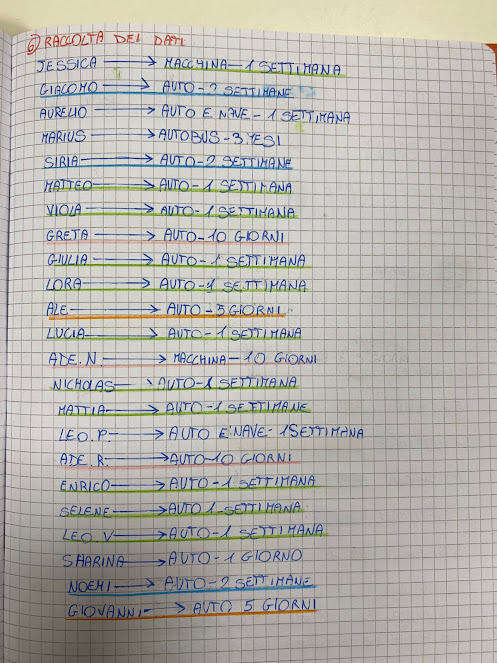 6) RACCOLTA DEI DATI
JESSICA → MACCHINA - 1 SETTIMANA
GIACOMO → AUTO - 2 SETTIMANE
AURELIO → AUTO E NAVE - 1 SETTIMANA
MARIUS → AUTOBUS - 3 MESI
SIRIA → AUTO - 2 SETTIMANE
MATTEO → AUTO - 1 SETTIMANA
VIOLA → AUTO - 1 SETTIMANA
GRETA → AUTO - 10 GIORNI
GIULIA → AUTO - 1 SETTIMANA
LORA → AUTO - 1 SETTIMANA
ALE → AUTO - 5 GIORNI
LUCIA → AUTO - 1 SETTIMANA
ADE. N. → MACCHINA - 10 GIORNI
NICHOLAS → AUTO - 1 SETTIMANA
MATTIA → AUTO - 1 SETTIMANE
LEO. P. → AUTO E NAVE - 1 SETTIMANA
ADE. R. → AUTO - 10 GIORNI
ENRICO → AUTO - 1 SETTIMANA
SELENE → AUTO 1 SETTIMANA
LEO V → AUTO - 1 SETTIMANA
SHARINA → AUTO - 1 GIORNO
NOEMI → AUTO - 2 SETTIMANE
GIOVANNI → AUTO 5 GIORNI